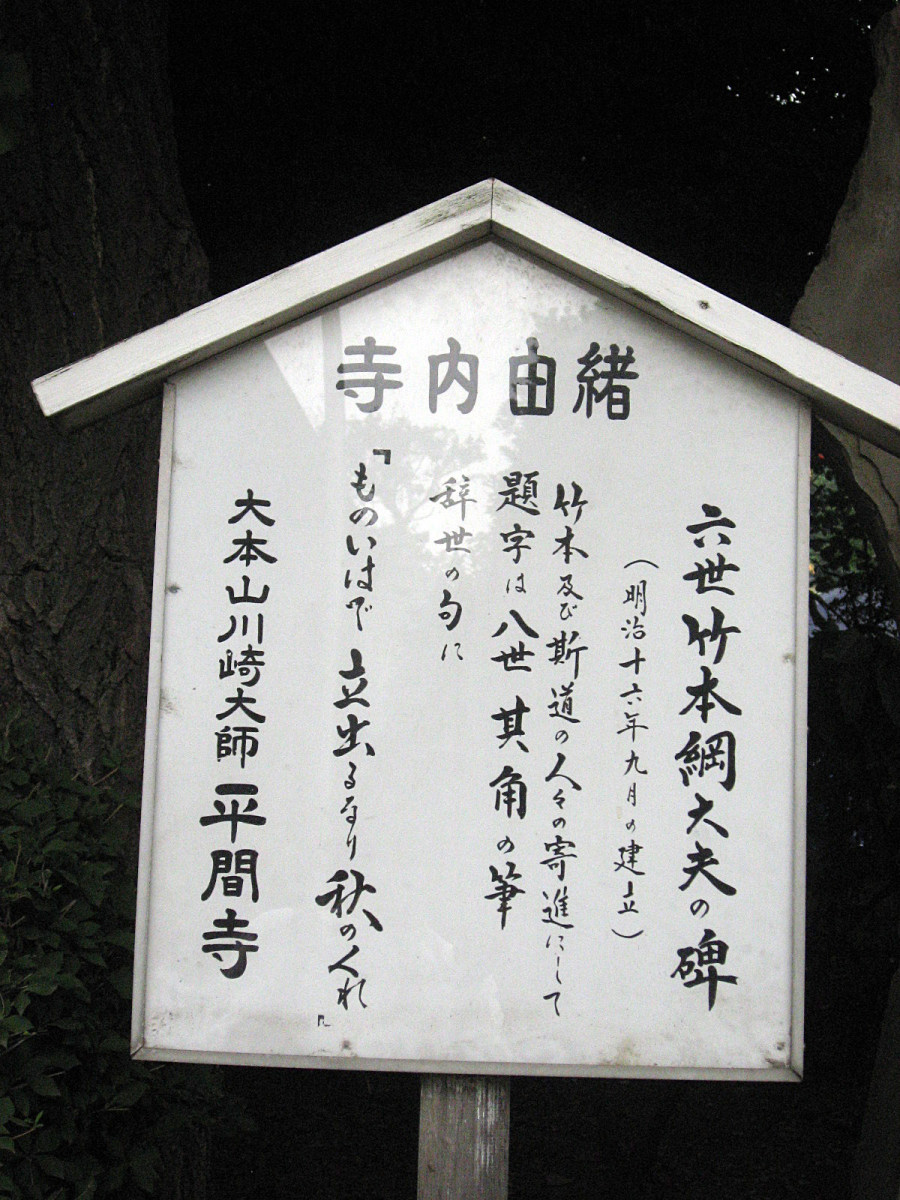 寺内由緒
六世竹本綱大夫の碑
（明治十六年九月の建立）
竹本及び斯道の人々の寄進にして
題字は八世其角の筆
辞世の句に
「ものいはで立出るなり秋のくれ」
大本山川崎大師平間寺